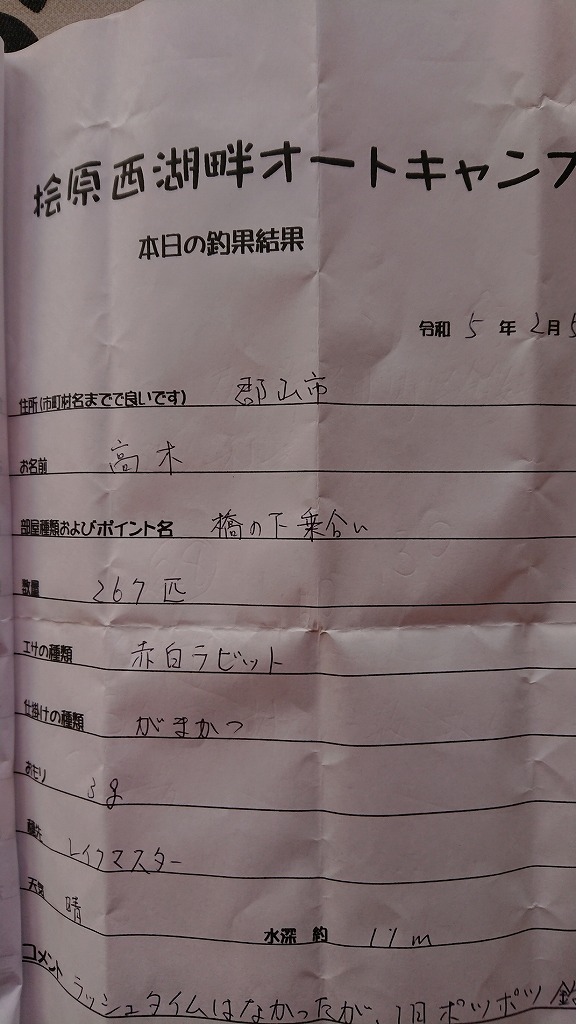 桧原西湖畔オートキャンプ
本日の釣果結果
令和 5 年 2月 5
住所(市町村名までで良いです) 郡山市
お名前 高木
部屋種類およびポイント名 橋の下乗合い
数量 267匹
エサの種類 赤白ラビット
仕掛けの種類 がまかつ
おもり 3g
穂先 レイクマスター
天気 晴 水深 約 17m
コメント ラッシュタイムはなかったが、1日ポツポツ